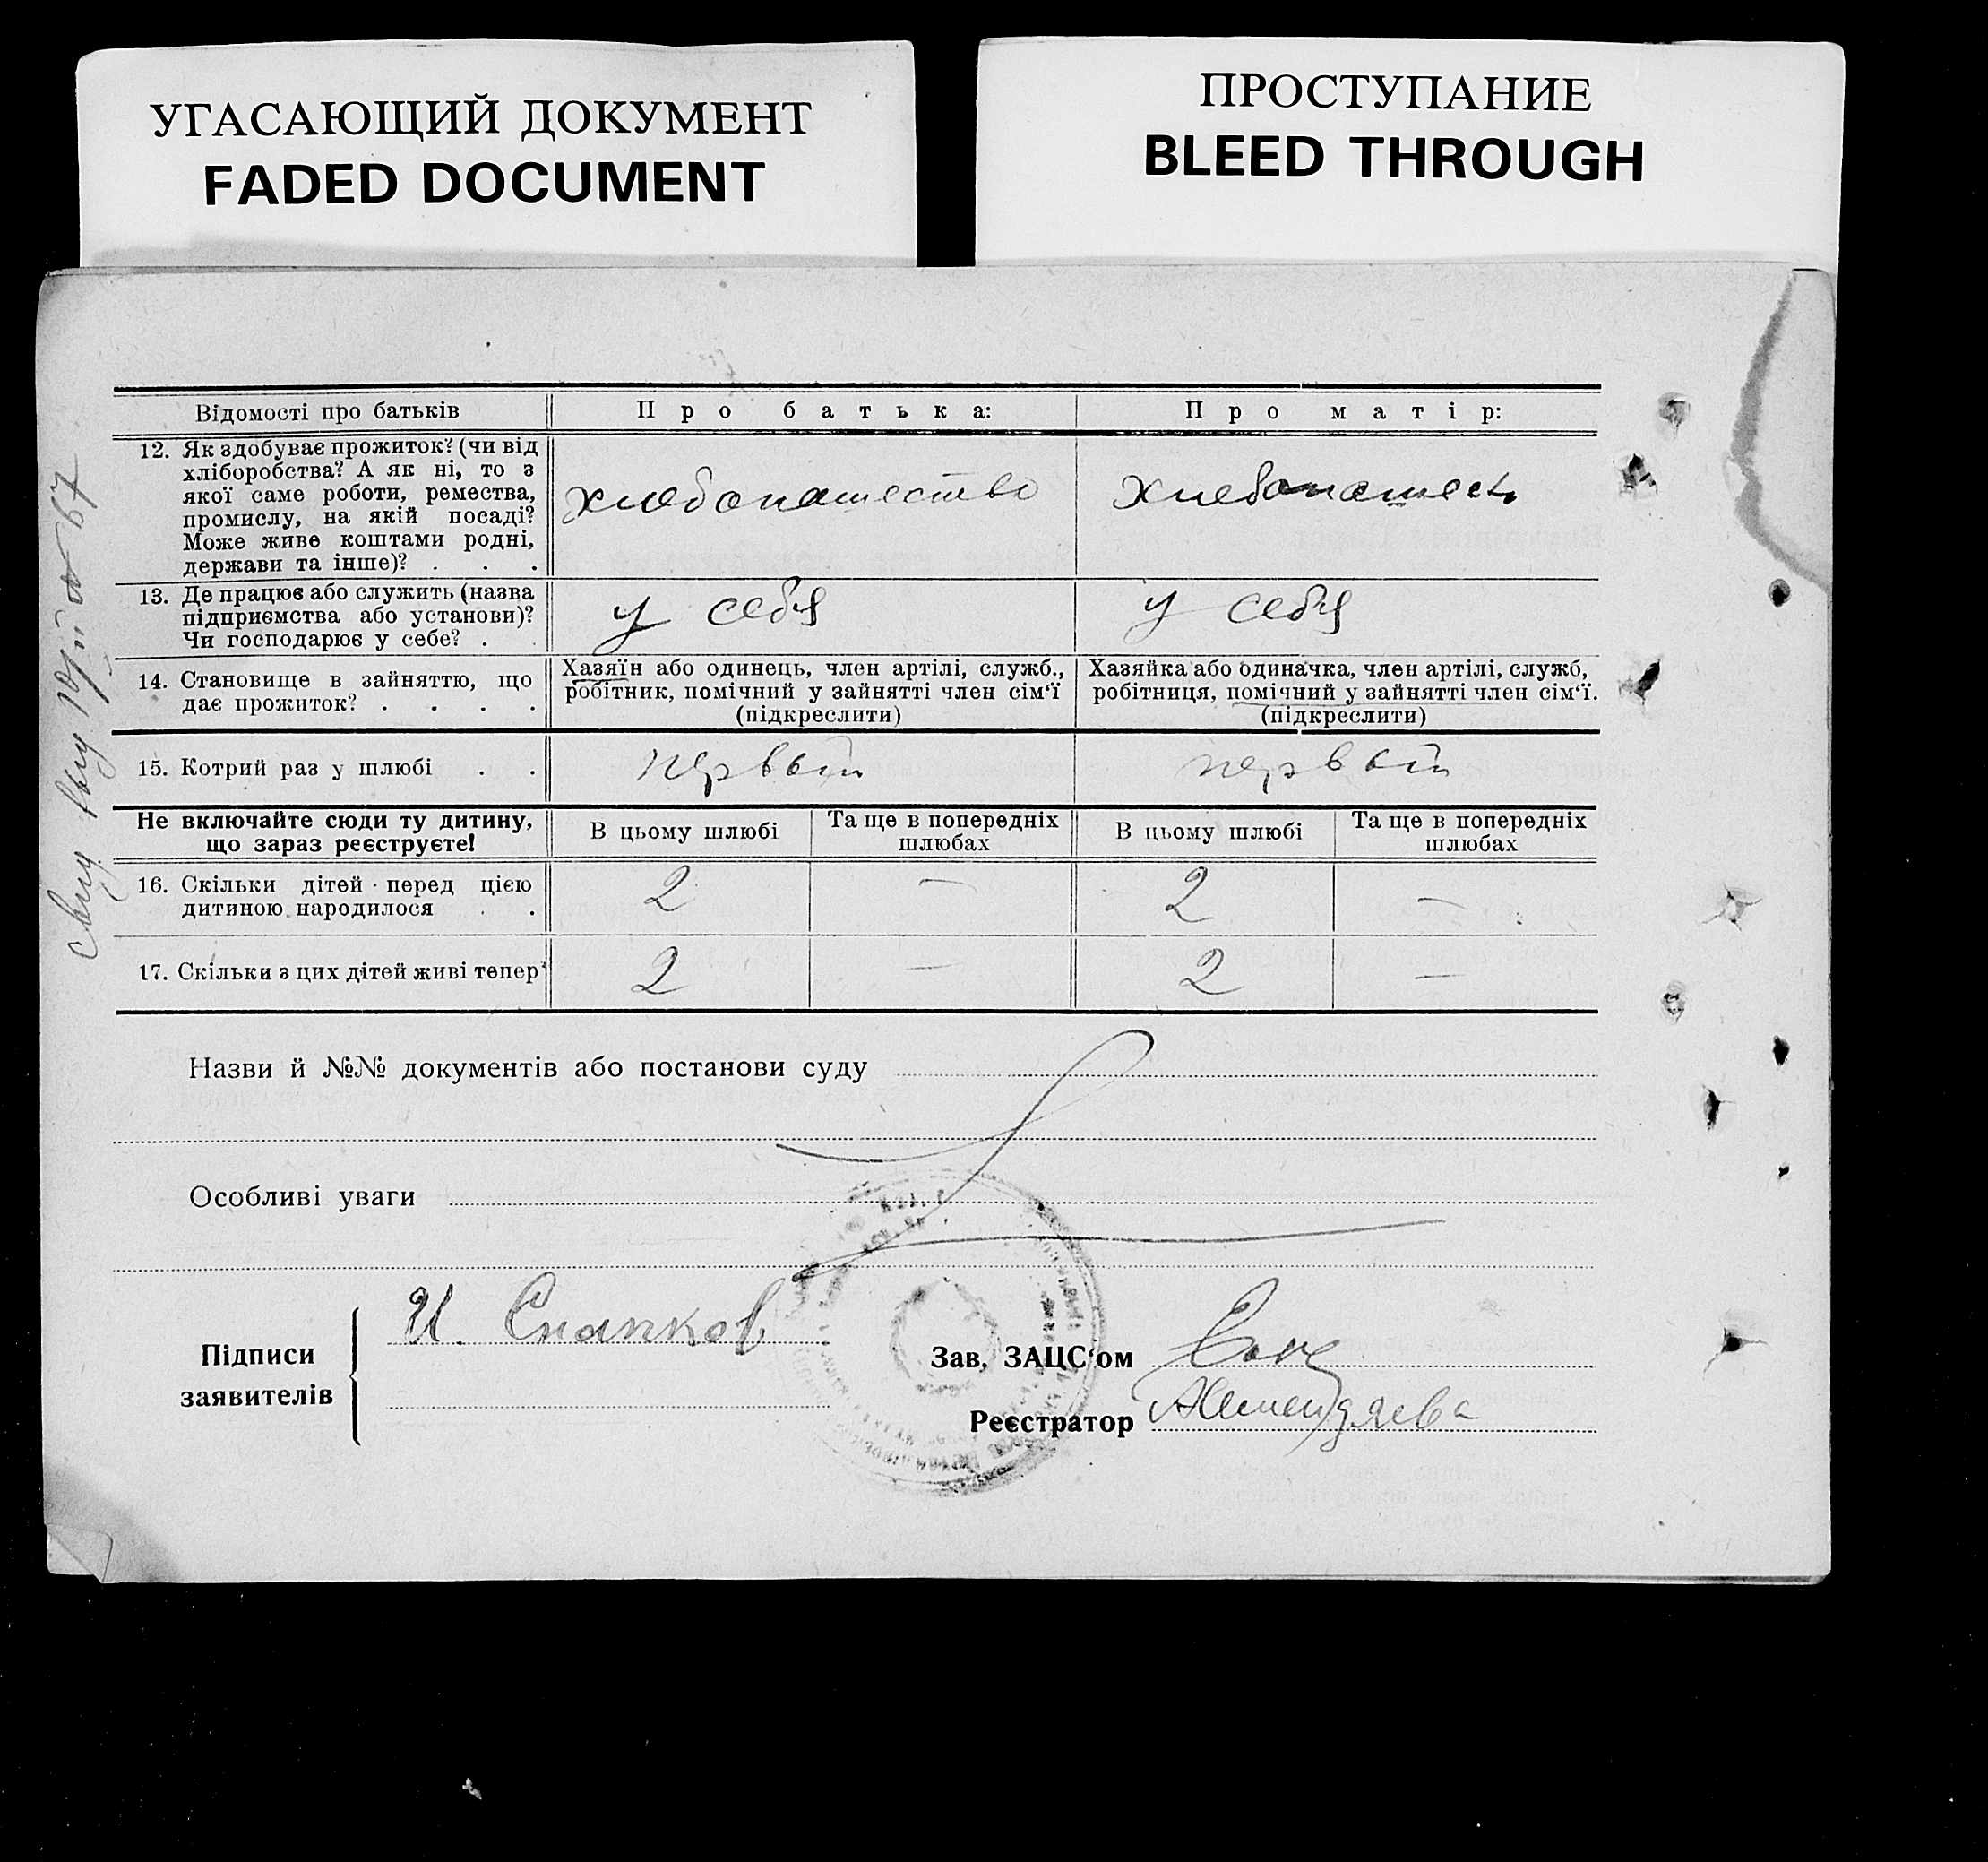 УГАСАЮЩИЙ ДОКУМЕНТ
FADED DOCUMENT
ПРОСТУПАНИЕ
BLEED THROUGH
Відомості про батьків
Про батька:
Про матір:
12. Як здобуває прожиток? (чи від
хліборобства? А як ні, то з
якої саме роботи, ремества,
промислу, на якій посаді?
Може живе коштами родні,
держави та інше)? . . .
хлебопашество
хлебопашест
13. Де працює або служить (назва
підприємства або установи)?
Чи господарює у себе? . .
у себя
у себя
14. Становище в зайняттю, що
дає прожиток? . . . .
Хазяїн або одинець, член артілі, служб.,
робітник, помічний у зайнятті член сім‘ї
(підкреслити)
Хазяйка або одиначка, член артілі, служб,
робітниця, помічний у зайнятті член сім‘ї.
(підкреслити)
15. Котрий раз у шлюбі . .
первый
первый
Не включайте сюди ту дитину,
що зараз реєструєте!
В цьому шлюбі
Та ще в попередніх
шлюбах
В цьому шлюбі
Та ще в попередніх
шлюбах
16. Скільки дітей перед цією
дитиною народилося . .
2 — 2 —
17. Скільки з цих дітей живі тепер
2 — 2 —
Назви й №№ документів або постанови суду
Особливі уваги
Підписи
заявителів
И.
Зав. ЗАЦС‘ом
Реєстратор